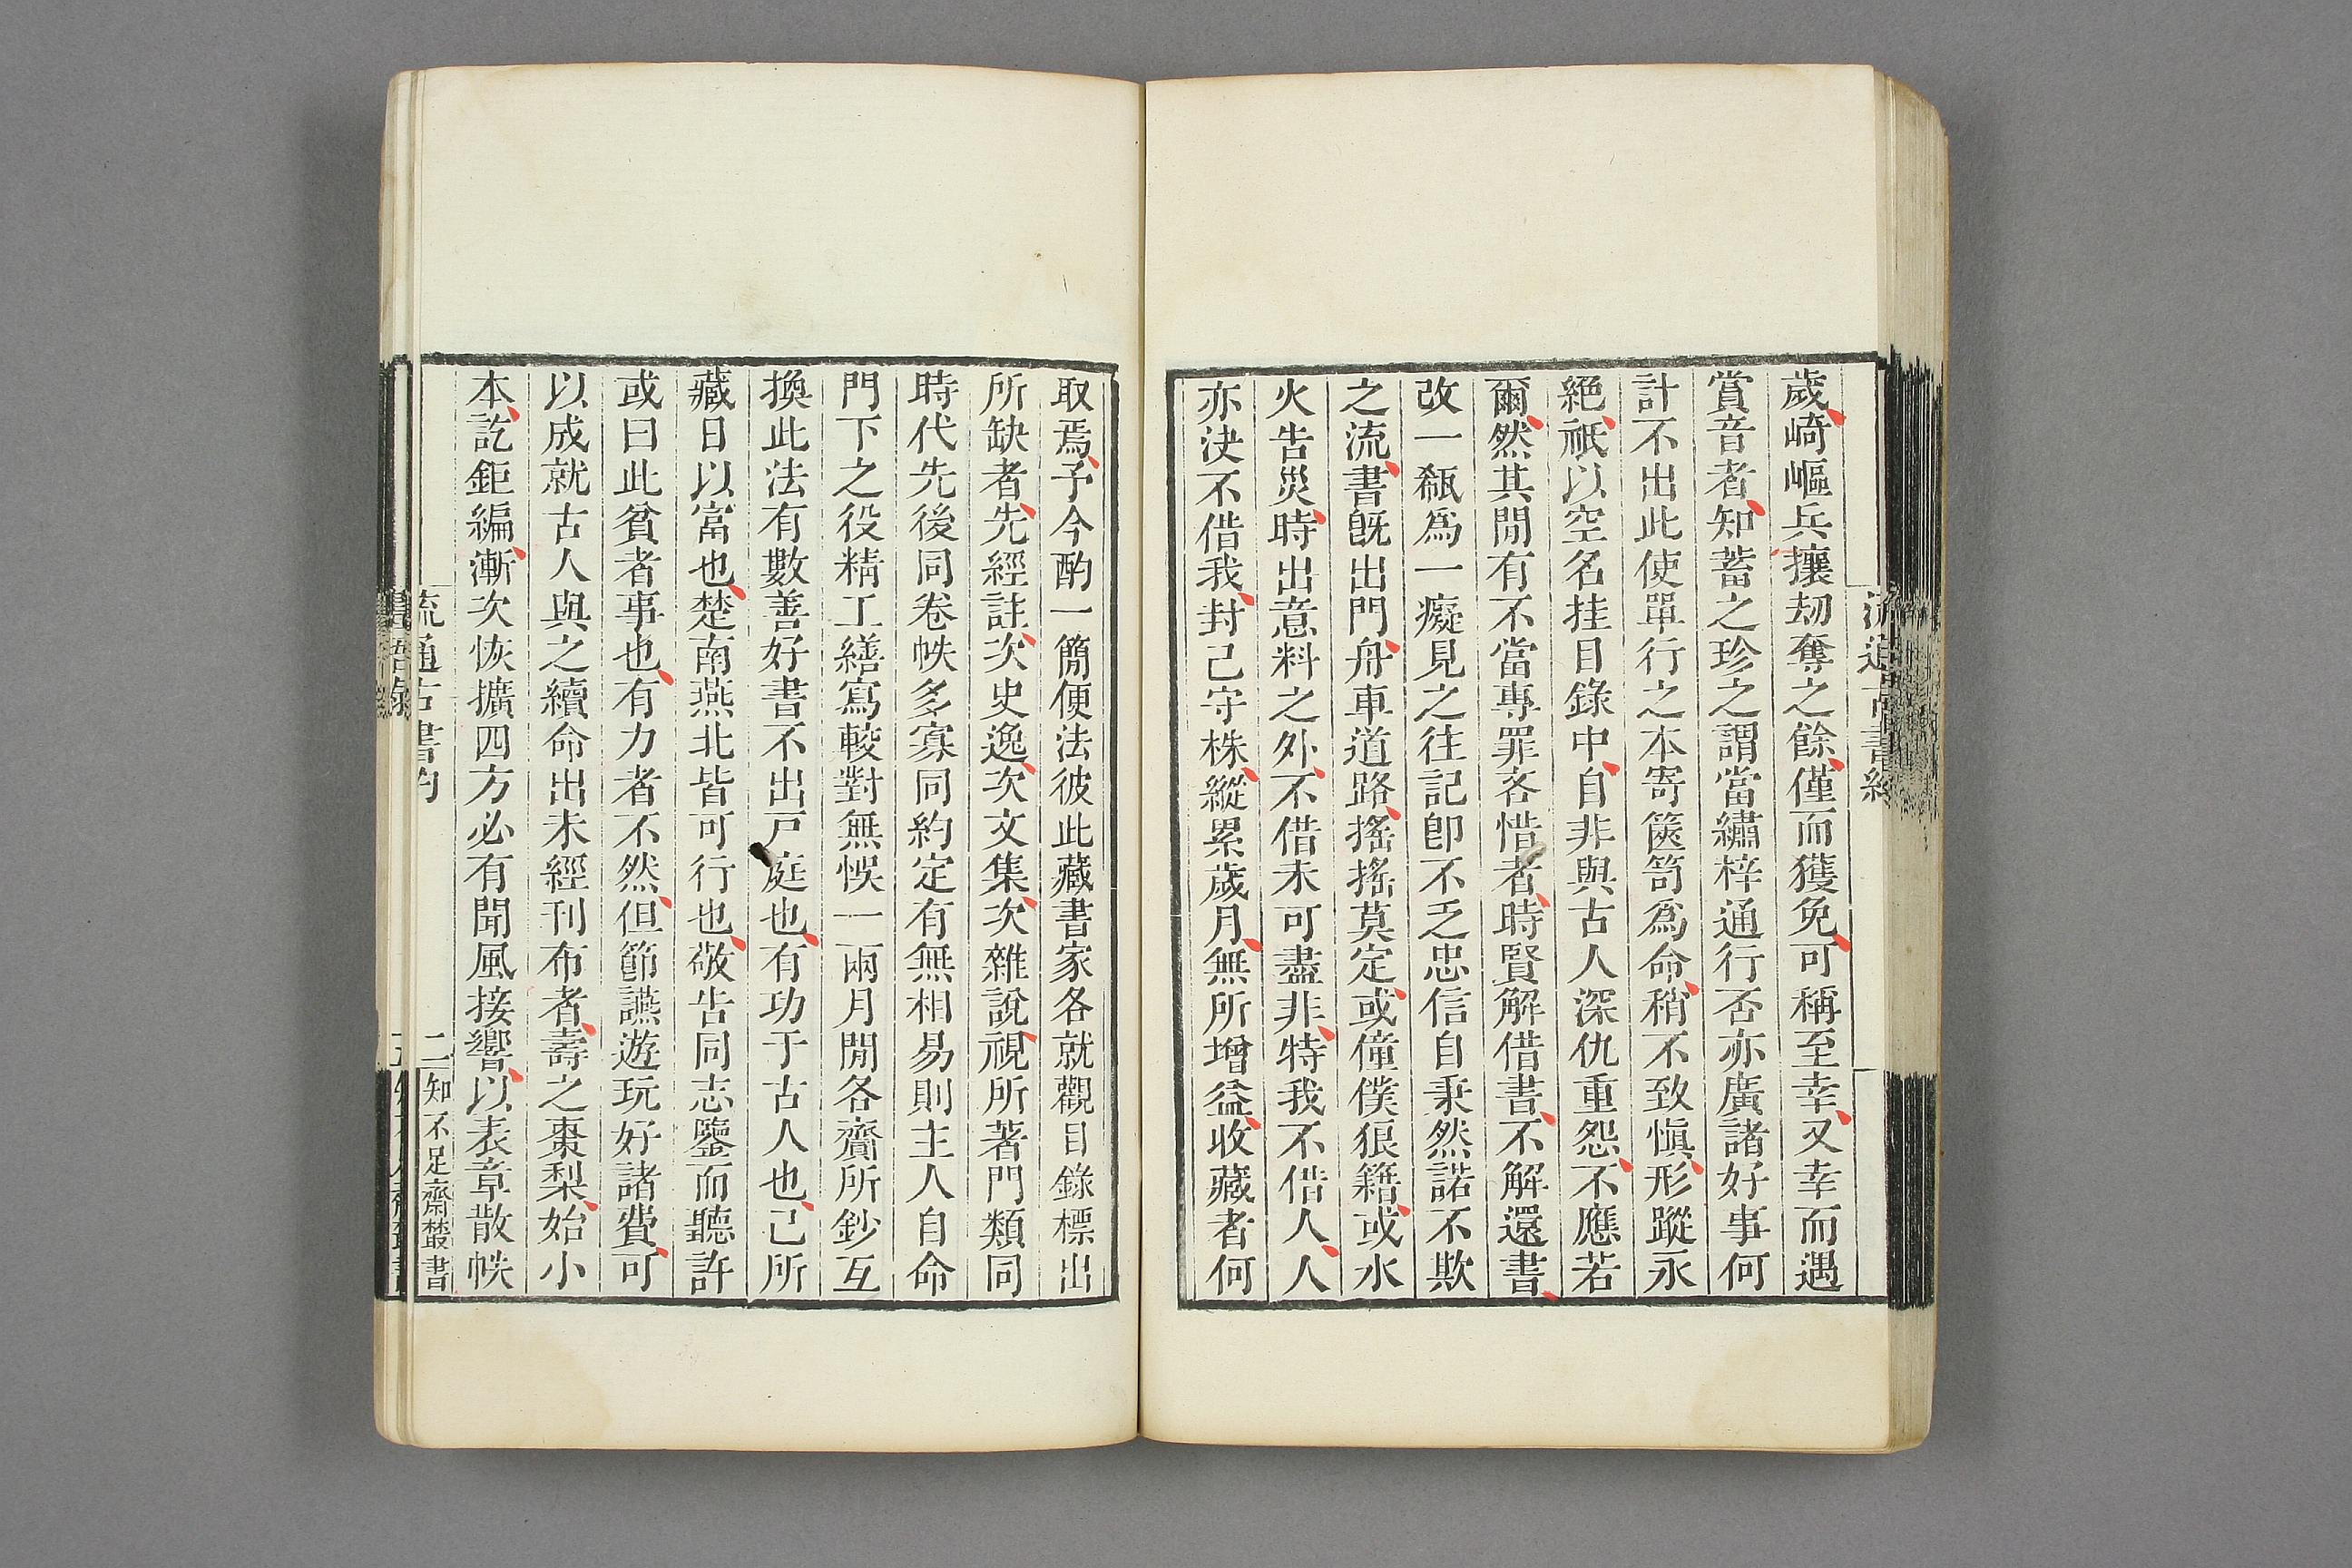 歲崎嶇兵攘刼奪之餘僅而獲免可稱至幸又幸而遇
賞音者知蓄之珍之謂當繡梓通行否亦廣諸好事何
計不出此使單行之本寄篋笥爲命稍不致愼形蹤永
絕祇以空名挂目錄中自非與古人深仇重怨不應若
爾然其閒有不當專罪吝惜者時賢解借書不解還書
改一瓻爲一癡見之往記卽不乏忠信自秉然諾不欺
之流書旣出門舟車道路搖搖莫定或僮僕狼籍或水
火告災時出意料之外不借未可盡非特我不借人人
亦決不借我封己守株縱累歲月無所增益收藏者何
取焉予今酌一簡便法彼此藏書家各就觀目錄標出
所缺者先經註次史逸次文集次雜說視所著門類同
時代先後同卷帙多寡同約定有無相易則主人自命
門下之役精工繕寫較對無悞一兩月閒各齎所鈔互
換此法有數善好書不出戸庭也有功于古人也己所
藏日以富也楚南燕北皆可行也敬告同志鑒而聽許
或曰此貧者事也有力者不然但節讌遊玩好諸費可
以成就古人與之續命出未經刊布者壽之棗梨始小
本訖鉅編漸次恢擴四方必有聞風接響以表章散帙
流通古書約
二
知不足齋叢書